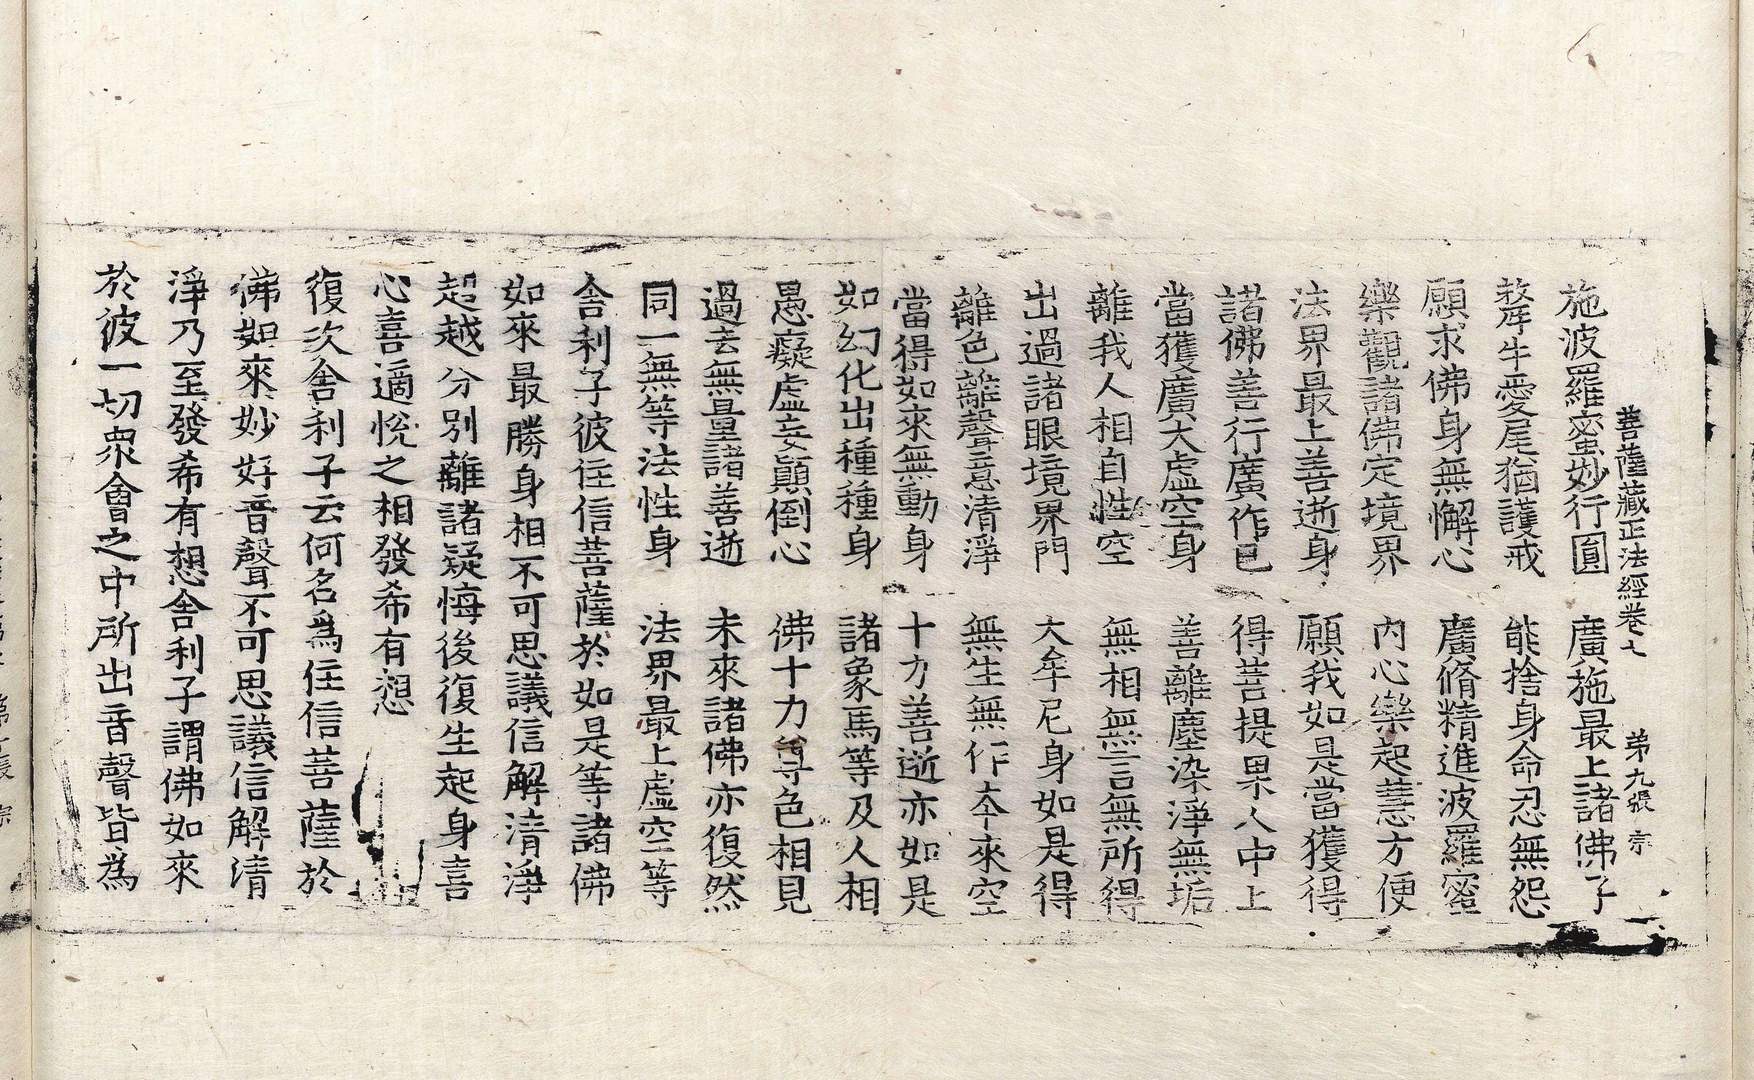 菩薩藏正法經卷七 第九張 宗
施波羅蜜妙行圓 廣施最上諸佛子
犛牛愛尾猶護戒 能捨身命忍無怨
願求佛身無懈心 廣脩精進波羅蜜
樂觀諸佛定境界 內心樂起慧方便
法界最上善逝身 願我如是當獲得
諸佛善行廣作已 得菩提果人中上
當獲廣大虛空身 善離塵染淨無垢
離我人相自性空 無相無言無所得
出過諸眼境界門 大牟尼身如是得
離色離聲意清淨 無生無作本來空
當得如來無動身 十方善逝亦如是
如幻化出種種身 諸象馬等及人相
愚癡虛妄顛倒心 佛十力尊色相見
過去無量諸善逝 未來諸佛亦復然
同一無等法性身 法界最上虛空等
舍利子彼住信菩薩於如是等諸佛
如來最勝身相不可思議信解清淨
超越分別離諸疑悔後復生起身喜
心喜適悅之相發希有想
復次舍利子云何名爲住信菩薩於
佛如來妙好音聲不可思議信解清
淨乃至發希有想舍利子謂佛如來
於彼一切衆會之中所出音聲皆爲